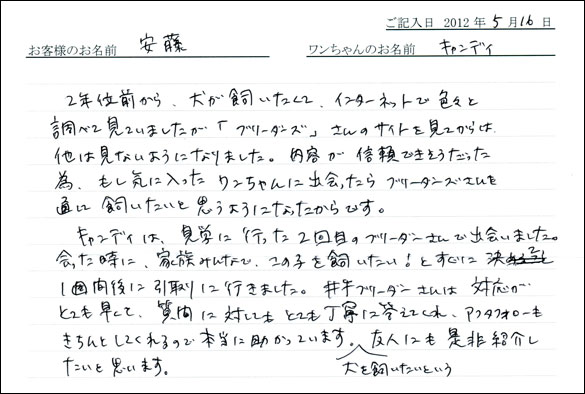 ご記入日 2012 年 5 月 16 日
お客様のお名前 安藤 ワンちゃんのお名前 キャンディ
2年位前から、犬が飼いたくて、インターネットで色々と
調べて見ていましたが「ブリーダーズ」さんのサイトを見てからは
他は見ないようになりました。内容が信頼できそうだった
為、もし気に入ったワンちゃんに出会ったらブリーダーズさんを
通じ飼いたいと思うようになったからです。
キャンディは、見学に行った2回目のブリーダーさんで出会いました。
会った時に、家族みんなで、この子を飼いたい!とすぐに決
1週間後に引取りに行きました。井手ブリーダーさんは対応が
とても早くて、質問に対してもとても丁寧に答えてくれ、アフターフォローも
きちんとしてくれるので本当に助かっています。友人にも是非紹介し
たいと思います。
犬を飼いたいという